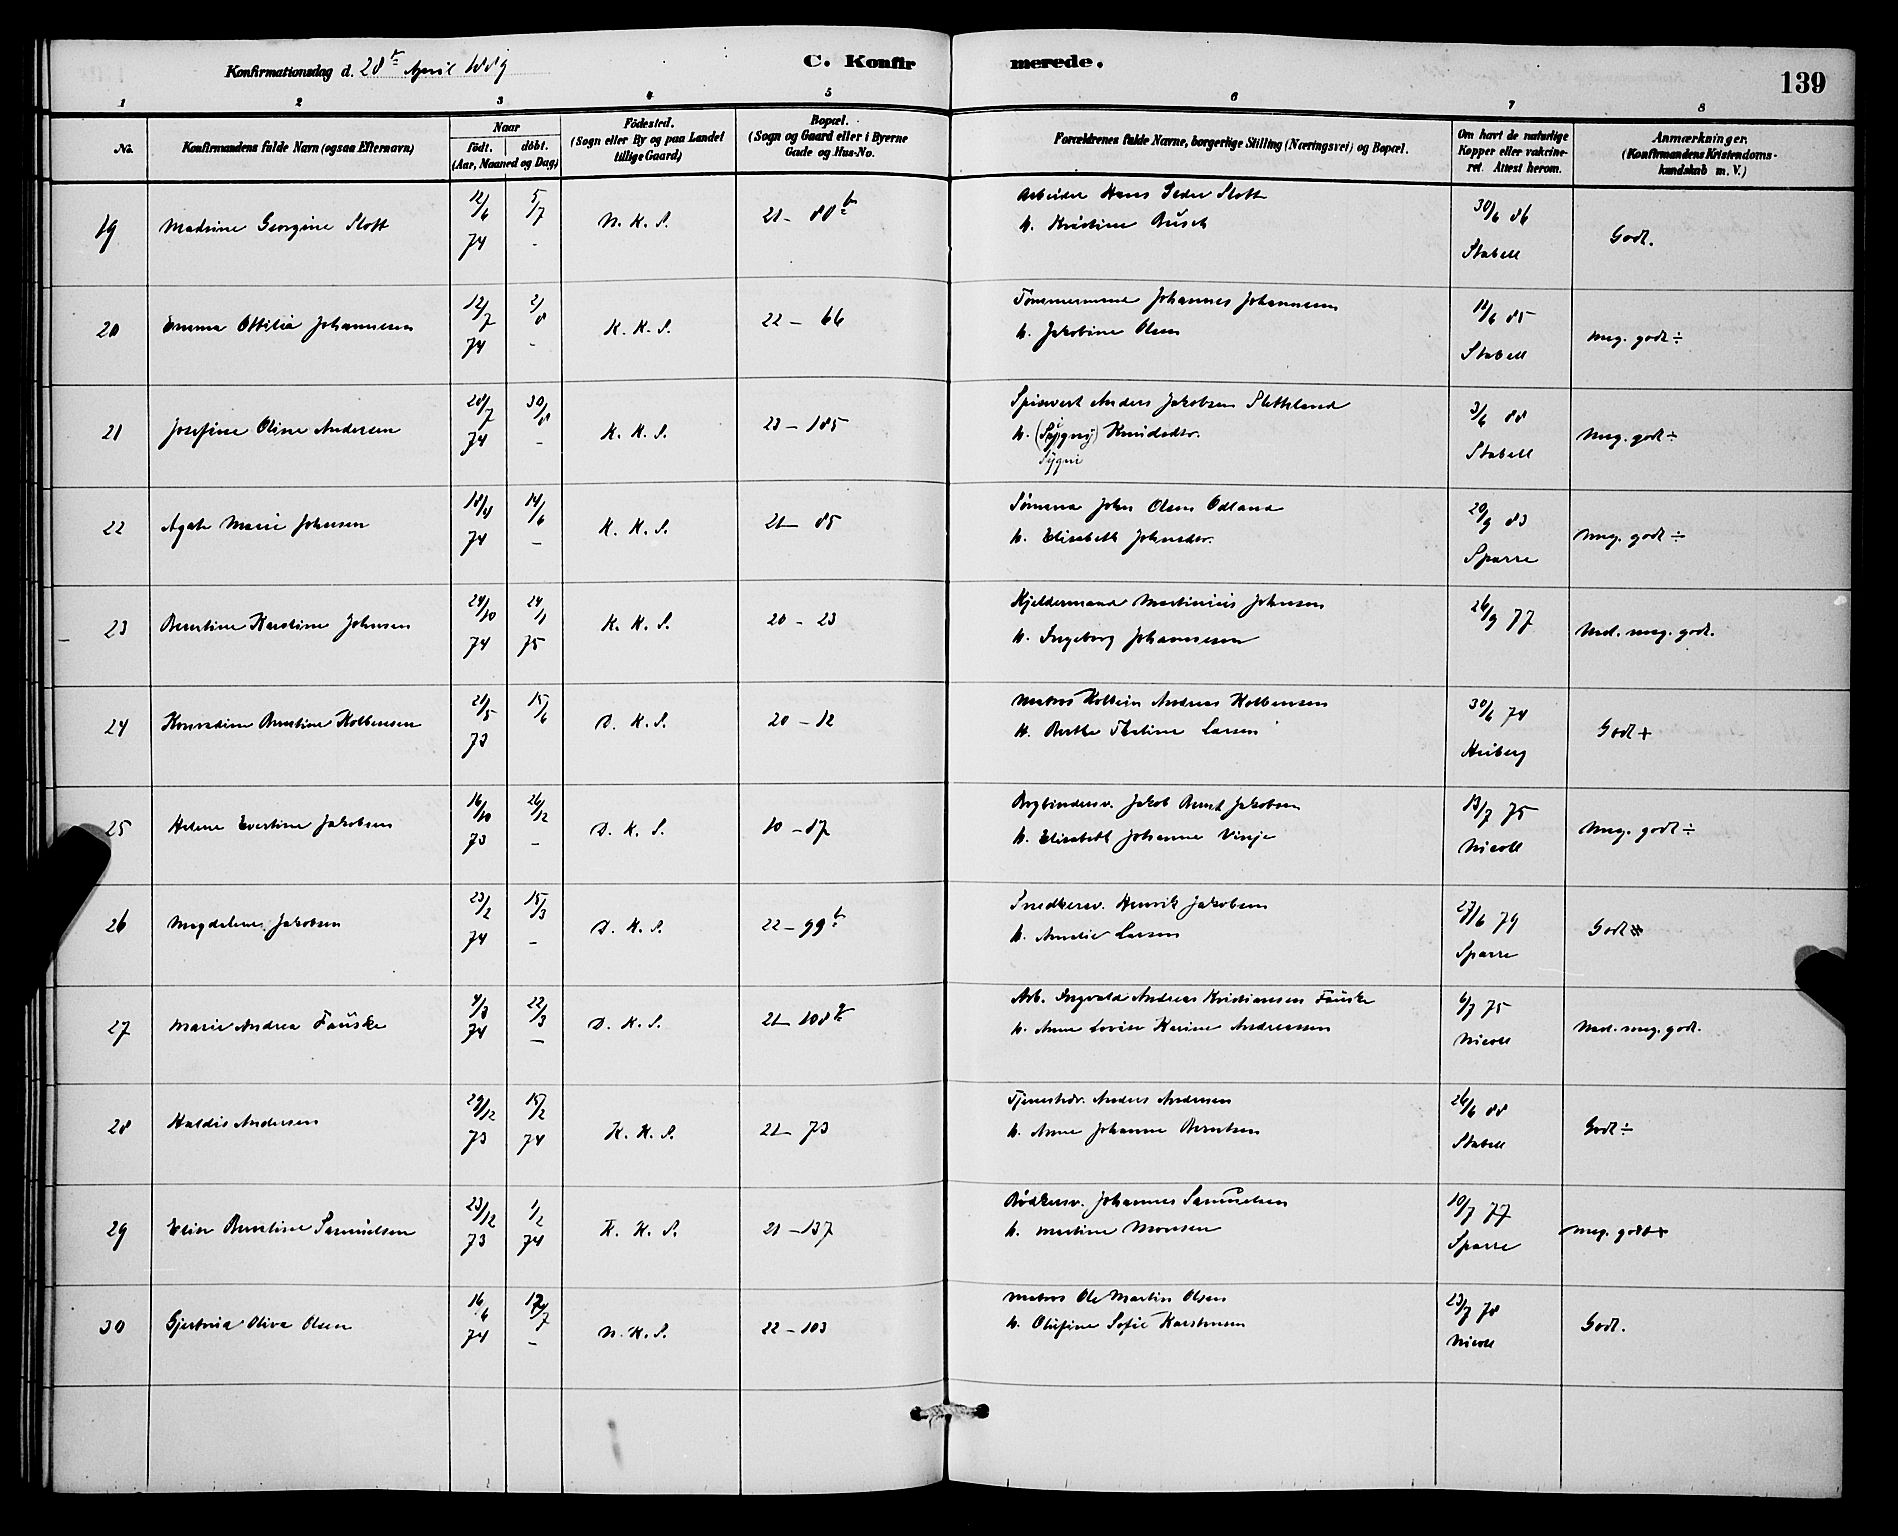 Konfirmationsdag d. 28de April 1889
C. Konfirmerede.
139
1 2 3 4 5 6 7 8
No.
Konfirmandens fulde Navn (ogsaa Efternavn)
Naar
födt. döbt.
(Aar, Maaned og Dag)
Födested.
(Sogn eller By og paa Landet
tillige Gaard)
Bopæl.
(Sogn og Gaard eller i Byerne
Gade og Hus-No.
Forældrenes fulde Navne, borgerlige Stilling (Næringsvei) og Bopæl.
Om havt de naturlige
Kopper eller vakcine-
ret. Attest herom.
Anmærkninger.
(Konfirmandens Kristendoms-
kundskab m. V.)
19 Madsine Georgine Slott 12/6 74 5/7 - N. K. S. 21 - 80b
Arbeider Hans Peder Slott
h. Kristine Busch
30/6 86 Stabell
Godt.
20 Emma Ottilia Johannesen 12/7 74 2/8 - K. K. S. 22 - 66
Tømmermand Johannes Johannesen
h. Jakobine Olsen
11/6 85 Stabell
Meg. godt ÷
21 Josefine Oline Andersen 28/7 74 30/8 - K. K. S. 23 - 185
Spisevert Anders Jakobsen Sletteland
h. (Sygny) Knudsdtr.
Sygni
3/6 88 Stabell
Meg. godt ÷
22 Agate Marie Johnsen 18/4 74 14/6 - K. K. S. 21 - 85
Sømand John Olsen Odland
h. Elisabeth Johnsdtr.
20/9 83 Sparre
Meg. godt ÷
23 Berntine Karstine Johnsen 24/10 74 24/1 75 K. K. S. 20 - 23
Kjeldermand Martinius Johnsen
h. Ingeborg Johannessen
26/9 77
Med. meg. godt.
24 Konradine Berntine Kolbensen 21/5 73 15/6 D. K. S. 20 - 12
Matros Kolbein Andreas Kolbensen
h. Berthe Thaline Larsen
30/6 74 Heiberg
Godt +
25 Helene Evertine Jakobsen 16/10 73 26/12 - D. K. S. 10 - 17
Bogbindersv. Jakob Bernt Jakobsen
h. Elisabeth Johanne Vinje
13/7 75 Nicoll
Meg. godt ÷
26 Magdalene Jakobsen 23/2 74 15/3 - D. K. S. 22 - 99b
Snedkersv. Henrik Jakobsen
h. Amalie Larsen
27/6 79 Sparre
Godt
27 Marie Andrea Fauske 4/3 74 22/3 - D. K. S. 21 - 108
Arb. Ingvald Andreas Kristiansen Fauske
h. Anne Lovise Karine Andreassen
6/7 75 Nicoll
Med. meg. godt.
28 Haldis Andersen 29/12 73 15/2 74 K. K. S. 21 - 73
Tjenestkar. Anders Andersen
h. Anne Johanne Berntsen
26/6 88 Stabell
Godt ÷
29 Elise Berntine Samuelsen 23/12 73 1/2 74 K. K. S. 21 - 137
Bødkersv. Johannes Samuelsen
h. Martine Monsen
10/7 77 Sparre
Meg. godt +
30 Gjertruia Oliva Olsen 16/6 74 12/7 - N. K. S. 22 - 103
Matros Ole Martin Olsen
h. Olufine Sofie Karstensen
23/7 78 Nicoll
Godt.